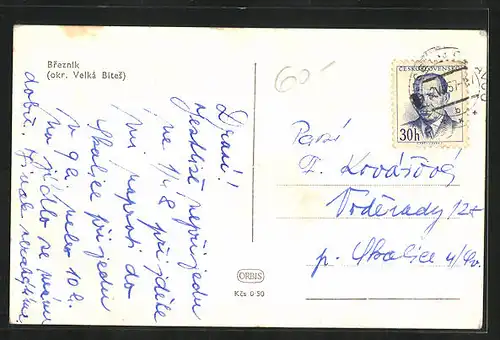 Březník
(okr. Velká Bíteš)
60-
ČESKOSLOVENSKO
30h
Drazí!
Jestliže nepřijedu
ve 1/4 8 přijděte
mi naproti do
Skalice přijedu
v 9 h nebo 10 h.
na jídlo se mám
dobře. Jinak
Paní
F. Kovářová
Voděrady 12
p. Skalice n/Sv.
ORBIS
Kčs 0·50